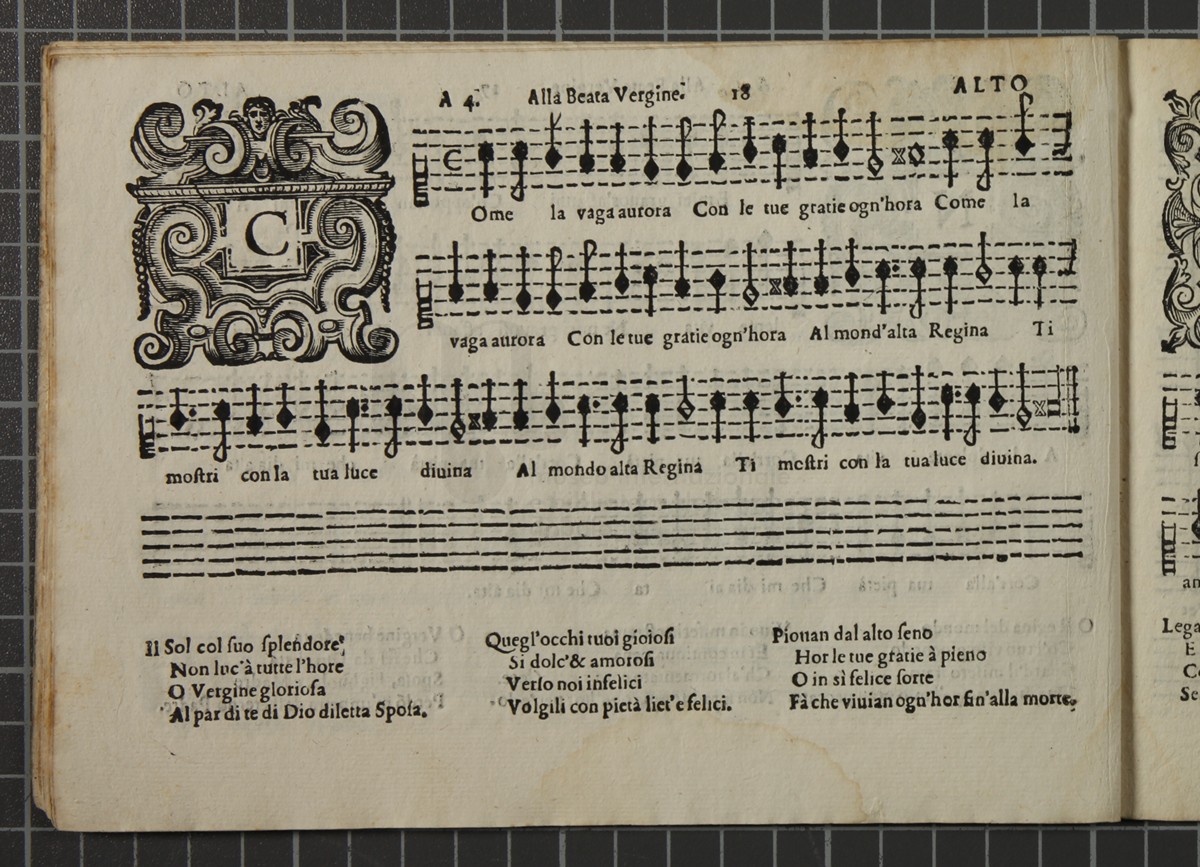 A 4. Alla Beata Vergine. 18 ALTO
C
Ome la vaga aurora Con le tue gratie ogn'hora Come la
vaga aurora Con le tue gratie ogn'hora Al mond'alta Regina Ti
moſtri con la tua luce diuina Al mondo alta Regina Ti moſtri con la tua luce diuina.
Il Sol col ſuo ſplendore,
Non luc'à tutte l'hore
O Vergine glorioſa
Al par di te di Dio diletta Spoſa.
Quegl'occhi tuoi gioioſi
Si dolc'& amoroſi
Verſo noi infelici
Volgili con pietà liet'e felici.
Piouan dal alto ſeno
Hor le tue gratie à pieno
O in sì felice ſorte
Fà che viuian ogn'hor fin'alla morte.
Lega
E
C
Se